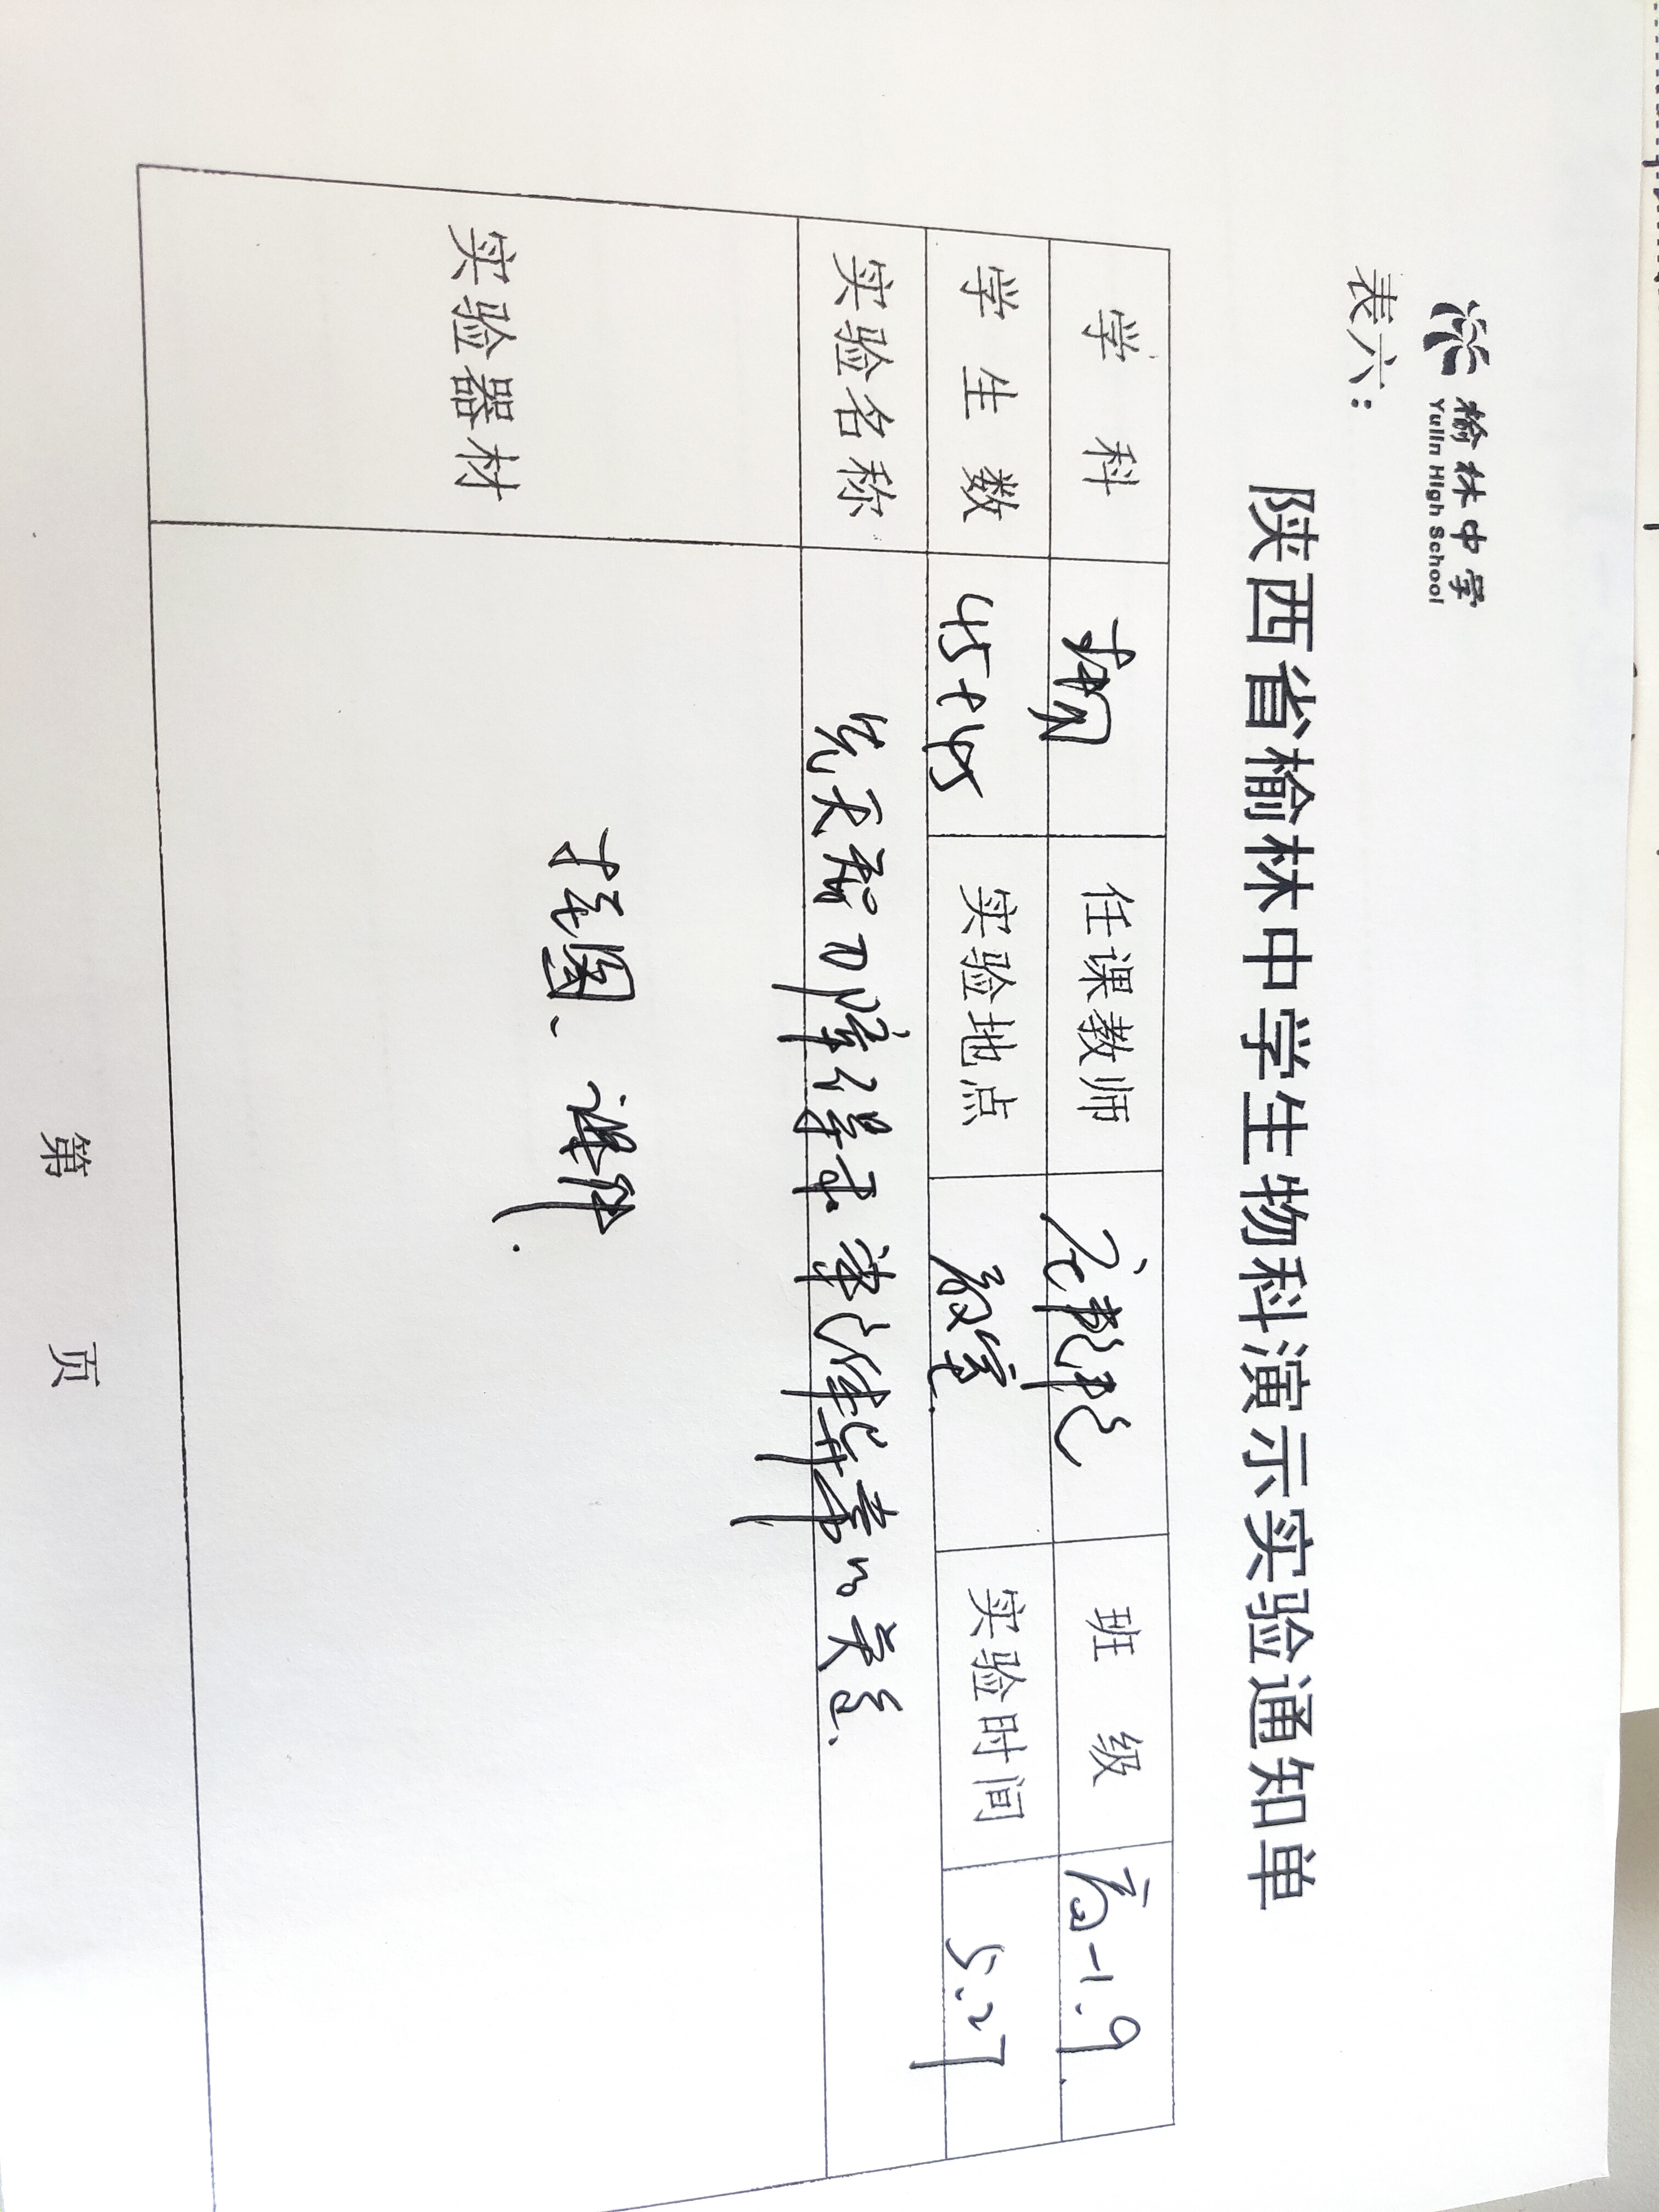 榆林中学
Yulin High School
表六：
陕西省榆林中学生物科演示实验通知单
学 科 任课教师 班 级 高一1.9
学 生 数 45+45 实验地点 教室 实验时间 5.27
实验名称 先天智力障碍与染色体异常的关系
实验器材 挂图、课件.
第 页